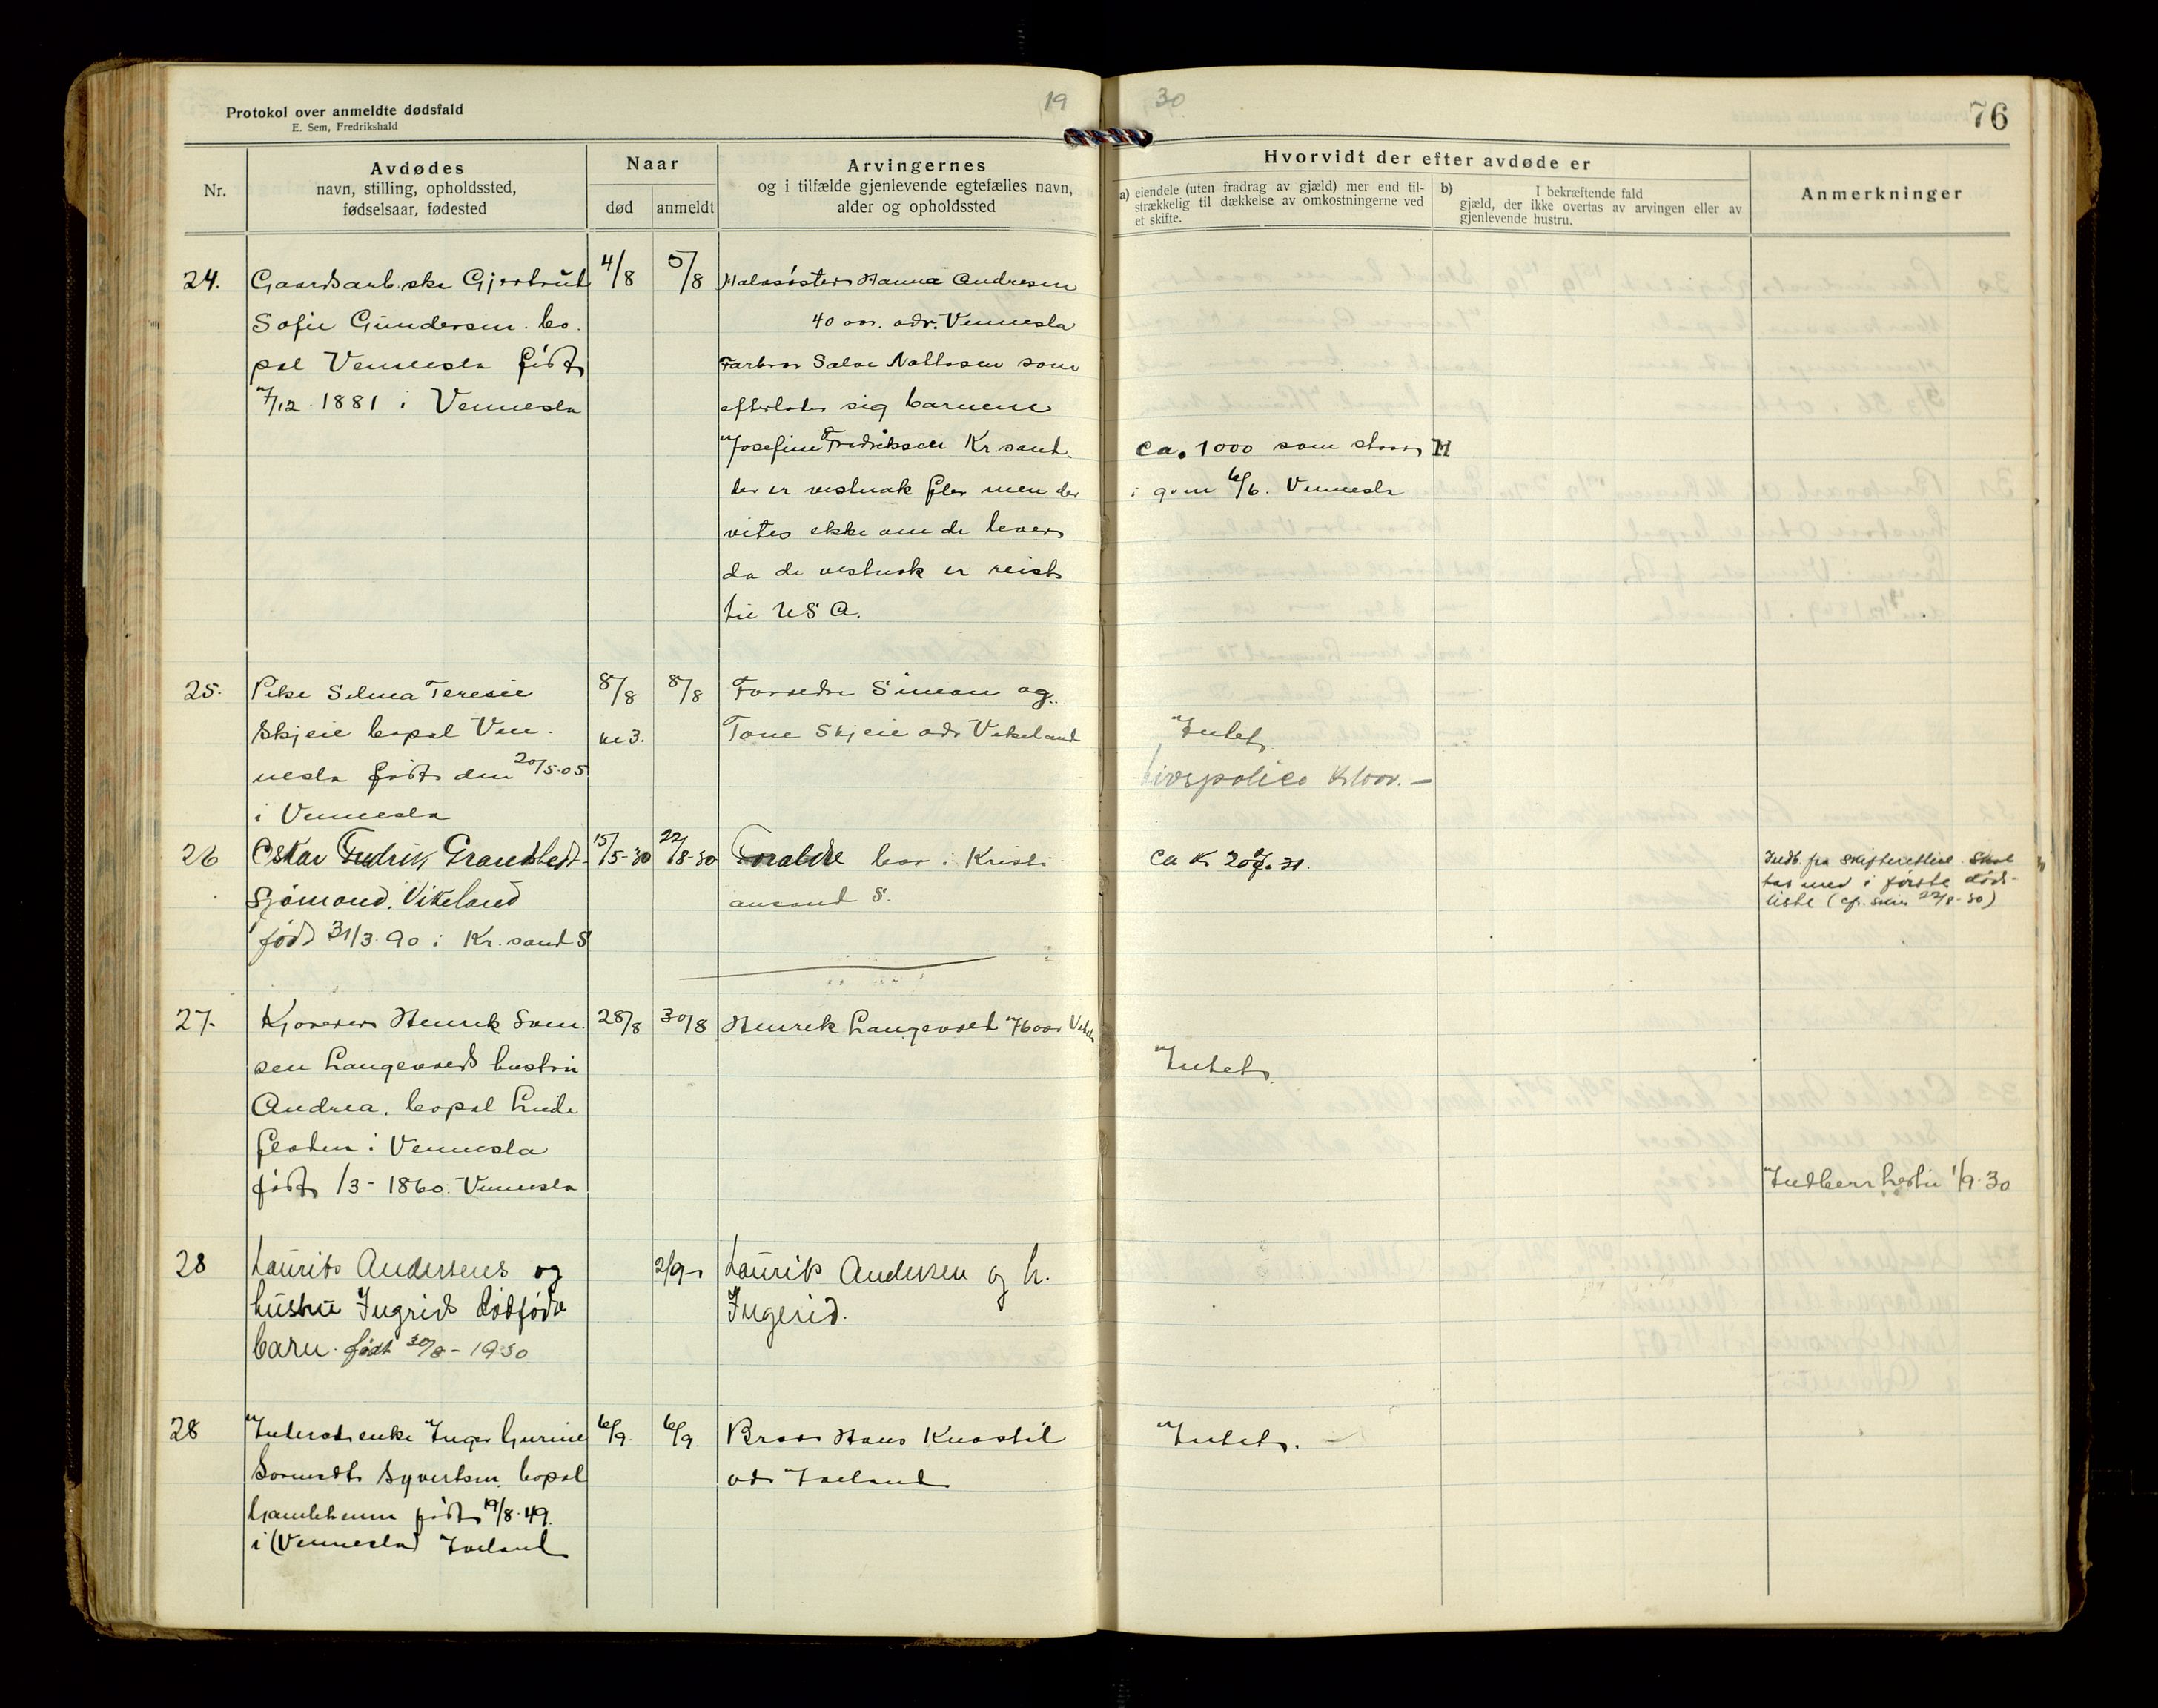 Protokol over anmeldte dødsfald
E. Sem, Fredrikshald
19 30
76
Nr.
Avdødes
navn, stilling, opholdssted,
fødselsaar, fødested
Naar
død
anmeldt
Arvingernes
og i tilfælde gjenlevende egtefælles navn,
alder og opholdssted
Hvorvidt der efter avdøde er
a) eiendele (uten fradrag av gjæld) mer end til-
strækkelig til dækkelse av omkostningerne ved
et skifte.
b) I bekræftende fald
gjæld, der ikke overtas av arvingen eller av
gjenlevende hustru.
Anmerkninger
24.
Gaardsarb.ske Gjertrud
Sofie Gundersen. bo.
pæl Vennesla født
7/12 1881 i Vennesla
4/8
5/8
Halvsøster Hanna Andresen
40 aar. adr. Vennesla
Farbror Salve som
efterlater sig barnene
Josefine Fredriksen Kr.sand.
der er vestnok fler men der
vites ikke om de lever
da de vestnok er reist
til USA.
ca. 1000 som staar
i g.m 6/6. Vennesla
25.
Pike Selma Teresie
Skjeie bopæl Ven.
nesla født den 20/5-05
i Vennesla
8/8
kl 3.
8/8
Forældre Simeon og
Tone Skjeie adr Vikeland
Intet
Livspolice Kr 1000.-
26
Oskar Fredrik Grandstedt
Sjømand. Vikeland
født 31/3.90 i Kr.sand S
15/5-30
22/8-30
Forældre bor i Kristi
ansand S.
ca Kr 20
Indb. fra Skifteretten. Skal
tas med i første døds-
liste (cfr. skriv 22/8-30)
27.
Kjører Henrik
sen Langevolds hustru
Andrea. bopæl Linde
floten i Vennesla
født 1/3-1860. Vennesla
28/8
30/8
Henrek Langevold 76 aar
Intet
Indber 1/9.30
28
Laurits Andersens og
hustru Ingrids dødfødte
barn. født 30/8-1930
2/9
Laurits Andersen og h.
Ingerid.
28
Inderstenke Inger Gurine
Syvertsen. bopæl
Gamlehemm født 19/8.49.
i (Vennesla) Iveland
6/9.
6/9.
Bror Hans Knostil
adr Iveland
Intet.